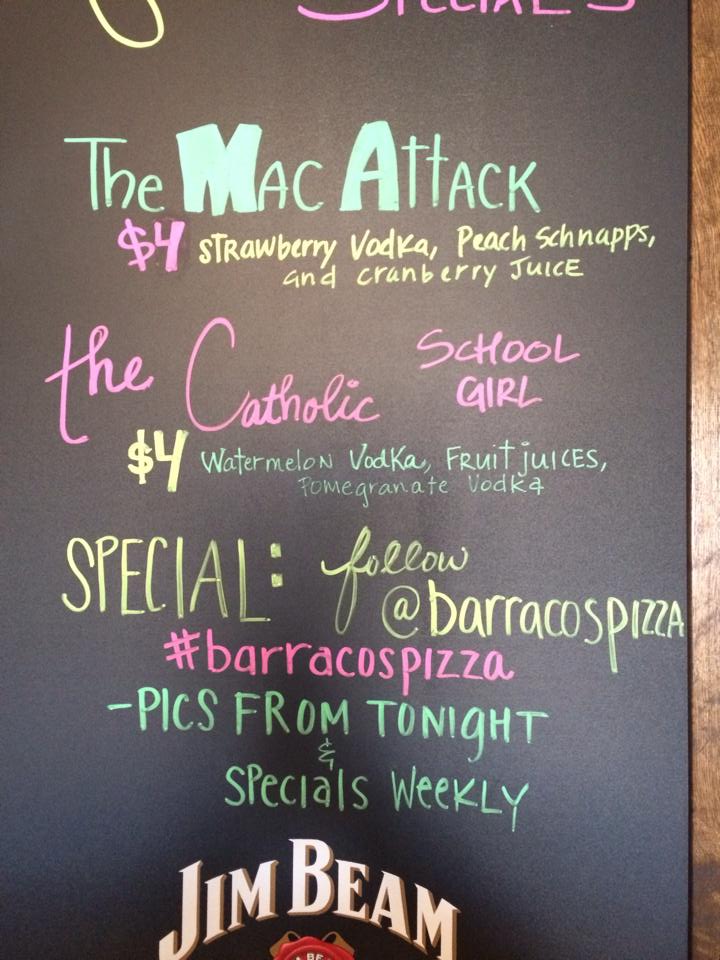 SPECIALS
The Mac Attack
$4 Strawberry Vodka, Peach Schnapps,
and cranberry Juice
the Catholic SCHOOL
GIRL
$4 Watermelon Vodka, Fruit juices,
Pomegranate Vodka
SPECIAL: follow
@barracospizza
#barracospizza
-PICS FROM TONIGHT
&
Specials Weekly
JIM BEAM